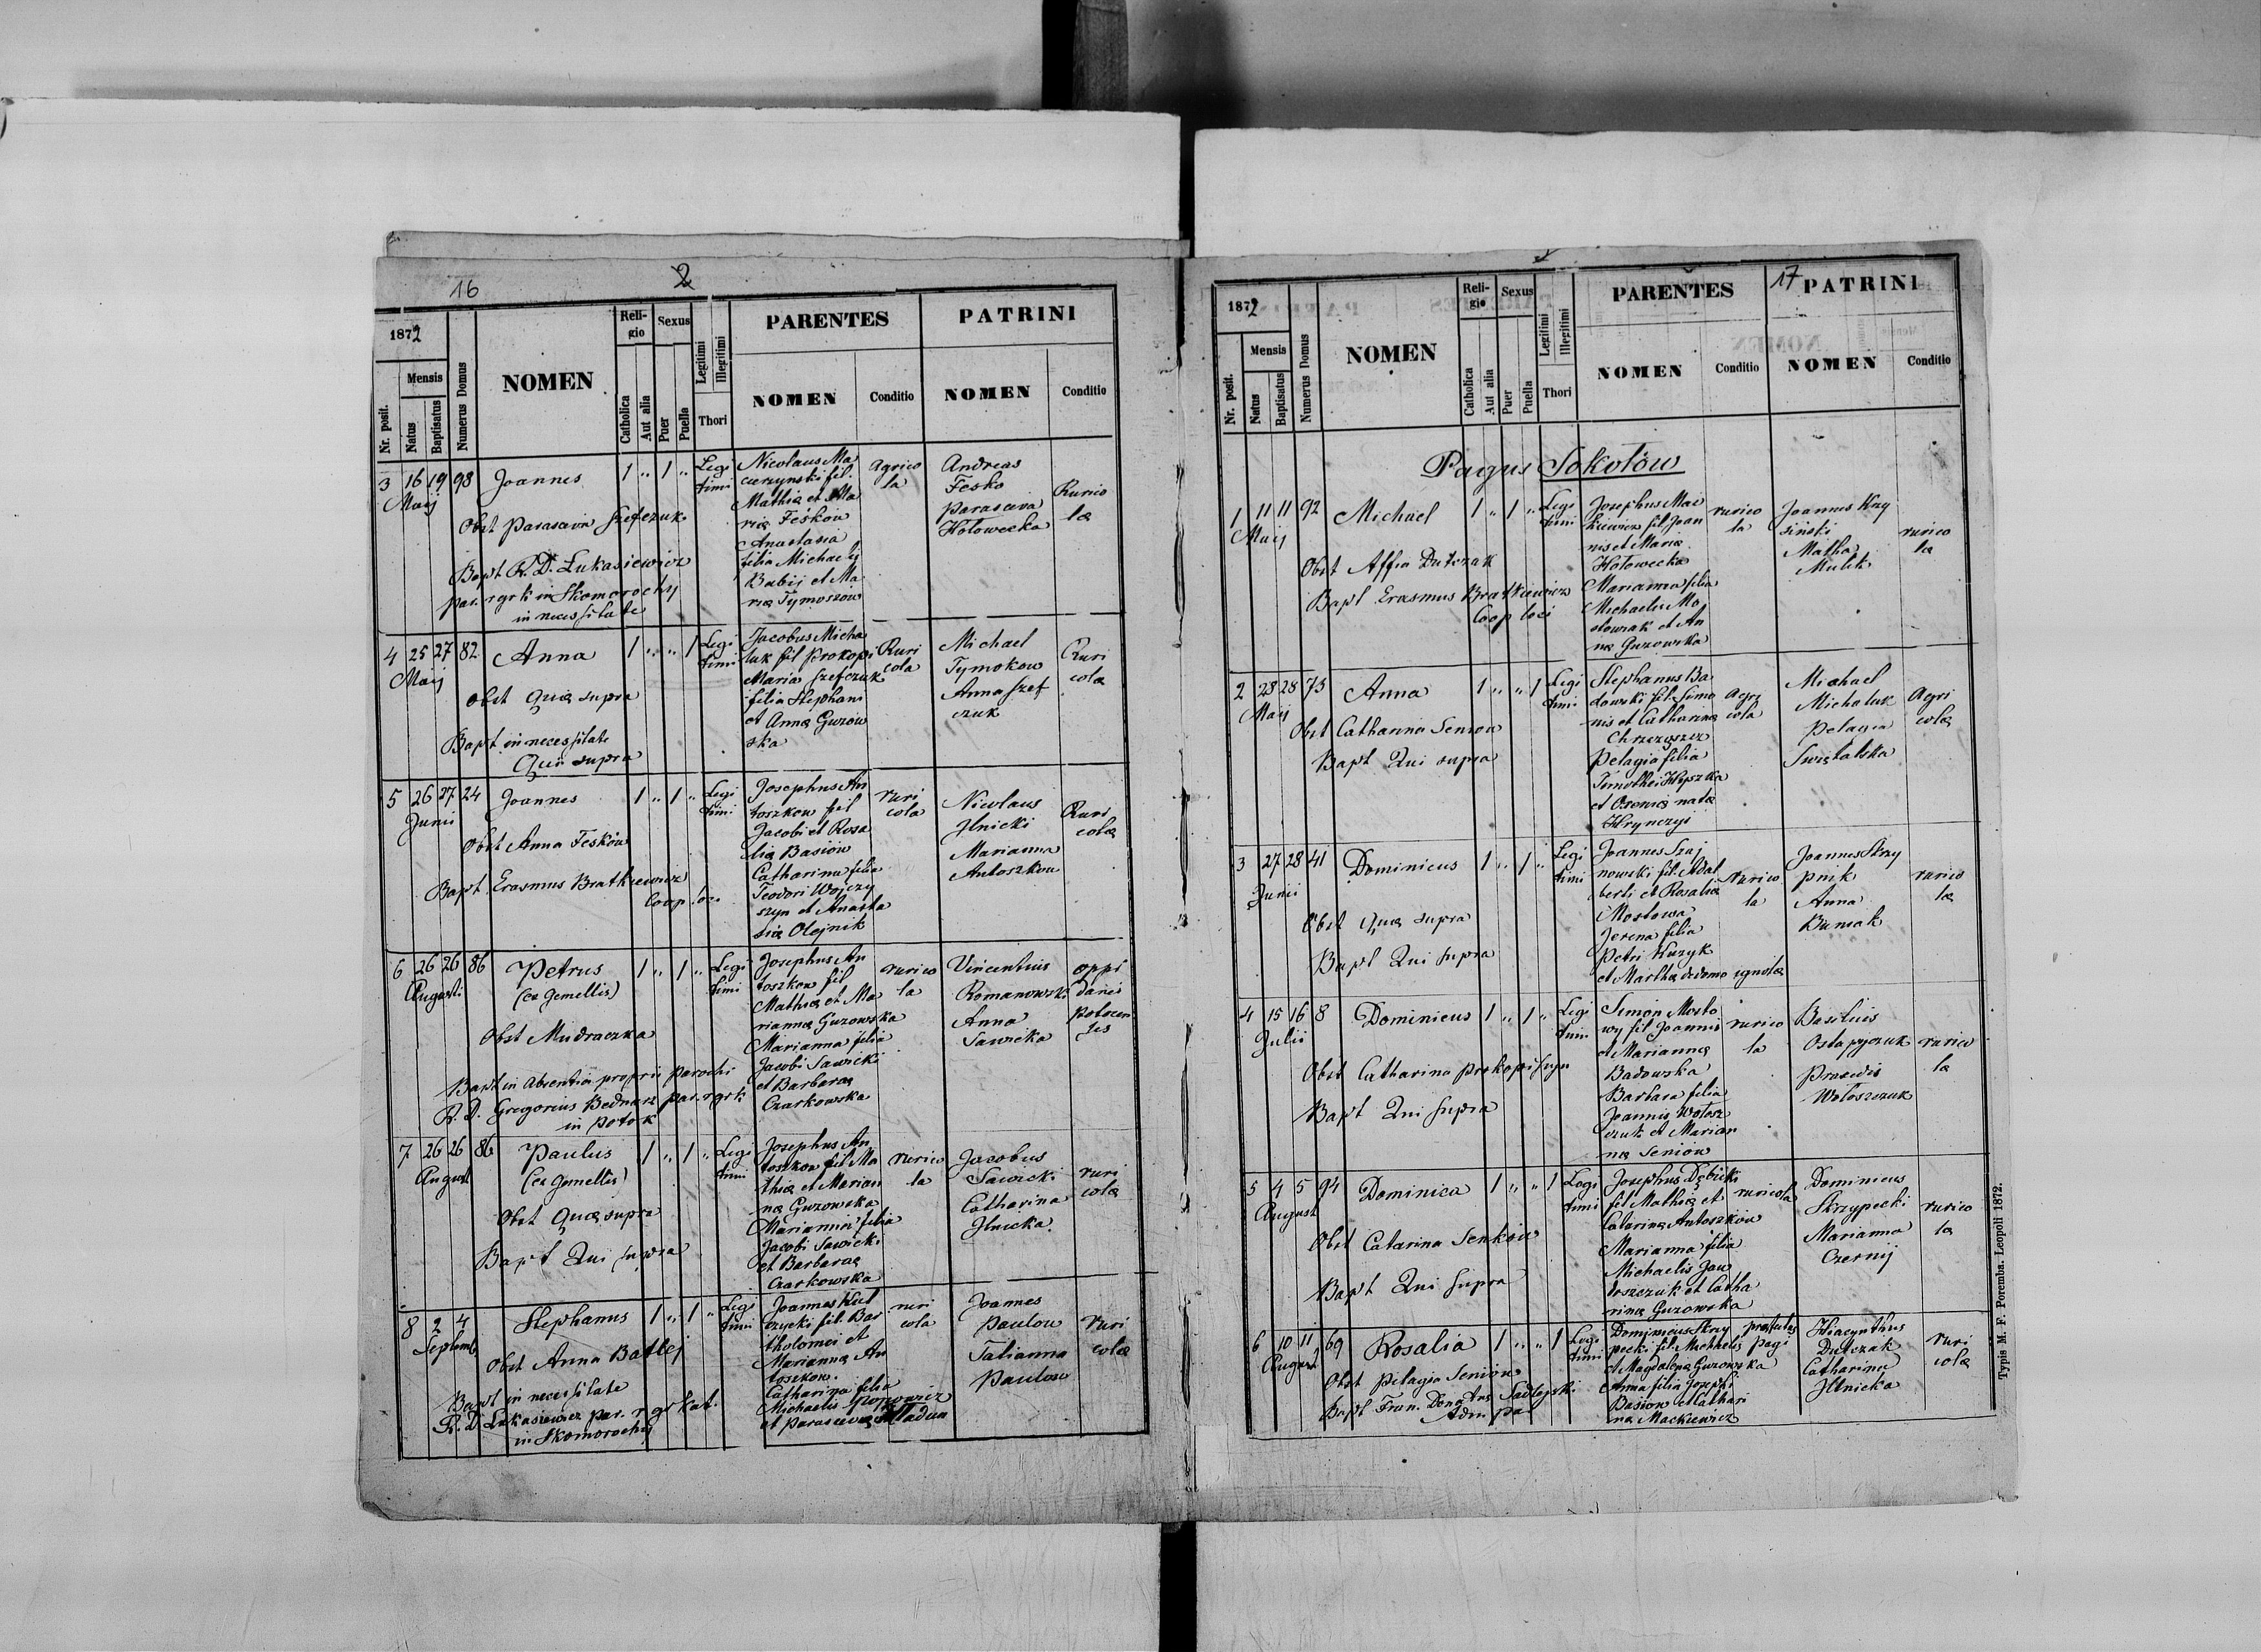 16
2
1872
Nr. posit.
Mensis
Natus
Baptisatus
Numerus Domus
NOMEN
Religio
Catholica
Aut alia
Sexus
Puer
Puella
Legitimi
Illegitimi
Thori
PARENTES
NOMEN
Conditio
PATRINI
NOMEN
Conditio
3 16 19 98 Joannes 1 " 1 " Legi
timi
Maij
Obst Parasceva Szefczuk
Bapt R. D. Lukasiewicz
par. r gr k in Skomorochy
in necessitate
Nicolaus Ma
cierzynski fil.
Mathiæ et Ma
riæ Feśkow
Anastasia
filia Michaelis
Babij et Ma
riæ Tymoszów
Agrico
la
Andreas
Fesko
Parasceva
Hołowecka
Rurico
læ
4 25 27 82 Anna 1 " " 1 Legi
timi
Maij
Obst Quæ supra
Bapt in necessitate
Qui supra
Jacobus Micha
luk fil Prokopi
Maria Szefczuk
filia Stephani
et Annæ Guzow
ska
Ruri
cola
Michael
Tymokow
Anna Szef
czuk
Ruri
colæ
5 26 27 24 Joannes 1 " 1 " Legi
timi
Junii
Obst Anna Feśkow
Bapt. Erasmus Bratkiewicz
Coop. loci
Josephus An
toszkow fil
Jacobi et Rosa
liæ Basiów
Catharina filia
Teodori Wojczy
szyn et Anasta
siæ Olejnik
ruri
cola
Nicolaus
Ilnicki
Marianna
Antoszkow
Ruri
colæ
6 26 26 86 Petrus 1 " 1 " Legi
timi
Augusti
(ex Gemellis)
Obst Mudraczka
Bapt in absentia proprii parochi
R. D. Gregorius Bednarz par. r gr k
in Potok
Josephus An
toszkow fil
Mathiæ et Ma
riannæ Guzowska
Marianna filia
Jacobi Sawicki
et Barbaræ
Czarkowska
rurico
la
Vincentius
Romanowski
Anna
Sawicka
oppi
danis
Potocen
ses
7 26 26 86 Paulus 1 " 1 " Legi
timi
August
(ex Gemellis)
Obst Quæ supra
Bapt Qui supra
Josephus An
toszkow fil Ma
thiæ et Marian
næ Guzowska
Marianna filia
Jacobi Sawicki
et Barbaræ
Czarkowska
rurico
la
Jacobus
Sawicki
Catharina
Ilnicka
ruri
colæ
8 2 4 Stephanus 1 " 1 " Legi
timi
Septemb
Obst Anna Batlej
Bapt in necessitate
R. D. Lukasiewicz par. r gr kat.
in Skomorochy
Joannes Kul
czycki fil. Bar
tholomei et
Mariannæ An
toszkow.
Catharina filia
Michaelis Popowicz
et Parascevæ Madun
ruri
cola
Joannes
Paulow
Tatianna
Paulow
ruri
colæ
17
1872
Nr. posit.
Mensis
Natus
Baptisatus
Numerus Domus
NOMEN
Religio
Catholica
Aut alia
Sexus
Puer
Puella
Legitimi
Illegitimi
Thori
PARENTES
NOMEN
Conditio
PATRINI
NOMEN
Conditio
Pagus Sokołów
1 11 11 92 Michael 1 " 1 " Legi
timi
Maij
Obst Affia Dutczak
Bapt Erasmus Bratkiewicz
Coop loci
Josephus Mac
kiewicz fil. Joan
nis et Mariæ
Hołowecka
Marianna filia
Michaelis Mo
stowiak et An
næ Guzowska
rurico
la
Joannes Krzy
siński
Mulik
rurico
læ
2 28 28 73 Anna 1 " " 1 Legi
timi
Maij
Obst Catharina Seniow
Bapt Qui supra
Stephanus Ba
dowski fil. Simo
nis et Catharinæ
Chrząszcz
Pelagia filia
Timothei
et Oxeniæ natæ
Hrynczyj
Agri
cola
Michael
Michaluk
Pelagia
Swiątalska
Agri
colæ
3 27 28 41 Dominicus 1 " 1 " Legi
timi
Junii
Obst Quæ supra
Bapt Qui supra
Joannes Szaj
nowski fil. Adal
berti et Rosaliæ
Mostowa
Jerena filia
Petri Kuzyk
et Marthæ de domo ignotæ
rurico
la
Joannes Skrzy
pnik
Anna
Buniak
rurico
læ
4 15 16 8 Dominicus 1 " 1 " Legi
timi
Julii
Obst Catharina Prokopiszyn
Bapt Qui supra
Simon Mosto
wy fil Joannis
et Mariannæ
Badowska
Barbara filia
Joannis Wołosz
czuk et Marian
næ Seniow
rurico
la
Basilius
Ostapyczuk
Praxeda
Wołoszczuk
rurico
læ
5 4 5 94 Dominica 1 " " 1 Legi
timi
August
Obst Catarina Senków
Bapt Qui supra
Josephus Dębicki
fil Mathiæ et
Catarinæ Antoszków
Marianna filia
Michaelis Jaw
doszczuk et Catha
rinæ Guzowska
ruricola
Dominicus
Skrzypecki
Marianna
Czernij
rurico
læ
6 10 11 69 Rosalia 1 " " 1 Legi
timi
August
Obst Pelagia Seniów
Bapt Fran. Donatus Sadlejski
Adm. par
Dominicus Skrzy
pecki fil. Michaelis
et Magdalenæ Guzowska
Anna filia Josephi
Basiow et Cathari
næ Mackiewicz
pagi
Hiacynthus
Dutczak
Catharina
Ilnicka
ruri
colæ
Typis M. F. Poremba. Leopoli 1872.